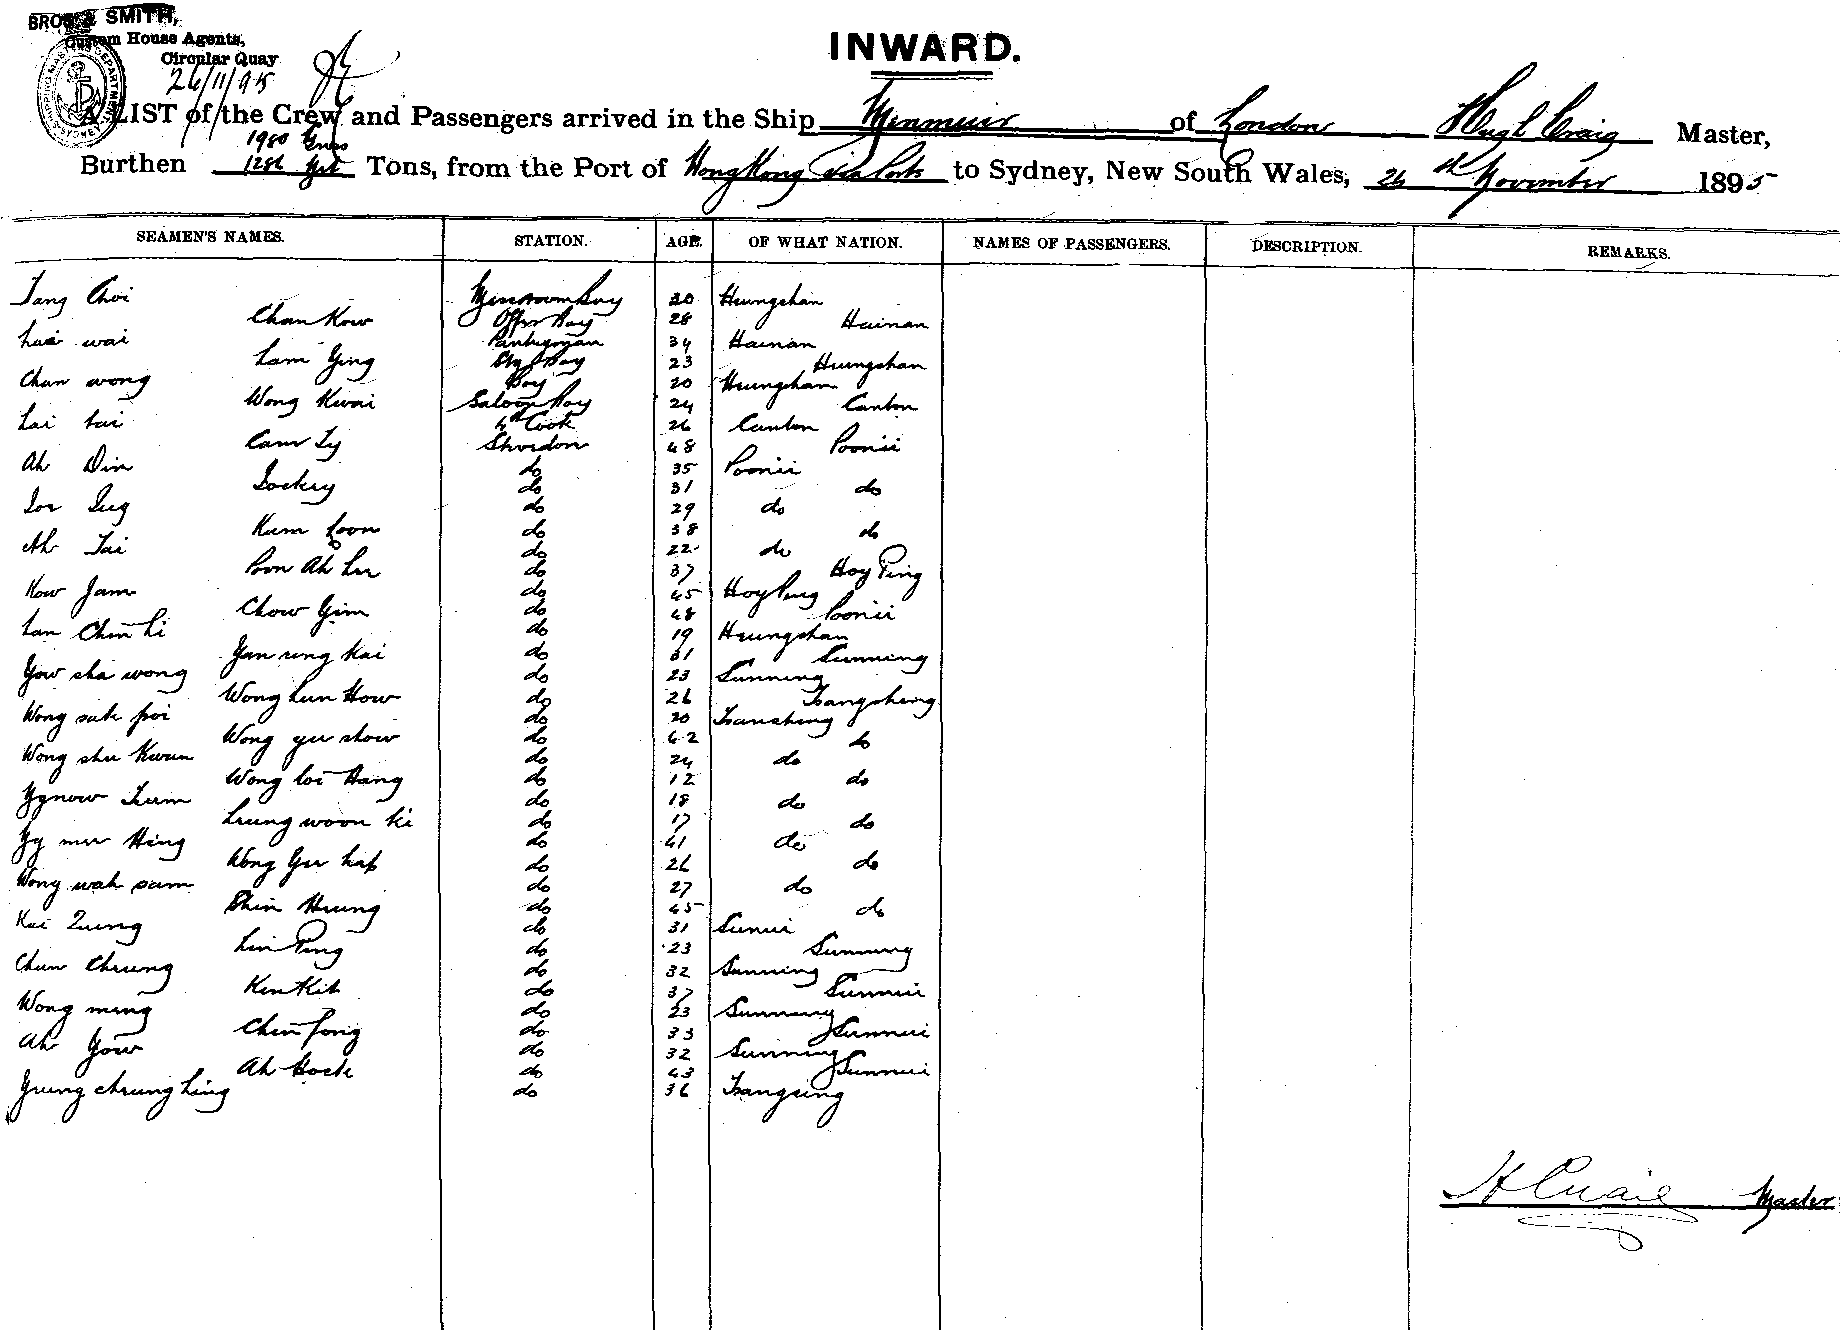 BROS & SMITH,
Custom House Agents,
Circular Quay
26/11/95
INWARD.
A LIST of the Crew and Passengers arrived in the Ship Menmuir of London Hugh Craig Master,
1980 Gross
Burthen 1286 Net Tons, from the Port of Hong Kong via Ports to Sydney, New South Wales, 26th November 1895
SEAMEN'S NAMES. STATION. AGE. OF WHAT NATION. NAMES OF PASSENGERS. DESCRIPTION. REMARKS.
Tang Choi Messroom Boy 20 Heungshan
Chan Kow Offrs Boy 28 Hainan
wai Pantryman 34 Hainan
Lam Ying Boy 23 Heungshan
Chan wong Boy 20 Heungshan
Wong Kwai Saloon Boy 24 Canton
Lai tai 4th Cook 26 Canton
Cam Ty 48 Poonii
Ah Din do 35 Poonii
Sockey do 31 do
do 29 do
Kum Loon do 38 do
Ah Tai do 22 do
Poon Ah Lee do 37 Hoy Ping
Kow Jam do 45 Hoy Ping
Chow Yim do 48 Poonii
Lan Chin Li do 19 Heungshan
Yan ung Kai do 31 Sunning
Yow sha wong do 23 Sunning
Wong Lun How do 26 Tsangsheng
Wong sak poi do 20 Tsansheng
Wong yu show do 42 do
Wong shu Kwun do 24 do
Wong loi Hang do 12 do
do 18 do
Leung woon Ki do 17 do
Yy mew Hing do 41 do
Wong Yu hap do 26 do
Wong wah sam do 27 do
Shin Heung do 45 do
Kai do 31 Sunui
Lin Ping do 23 Sunning
Chun Cheung do 32 Sunning
Ken Kit do 37 Sunnui
Wong ming do 23 Sunning
Chin fong do 33 Sunnui
Ah Yow do 32 Sunning
Ah Hock do 43 Sunnui
Yeung cheung hing do 36 Tsangsing
H Craig Master